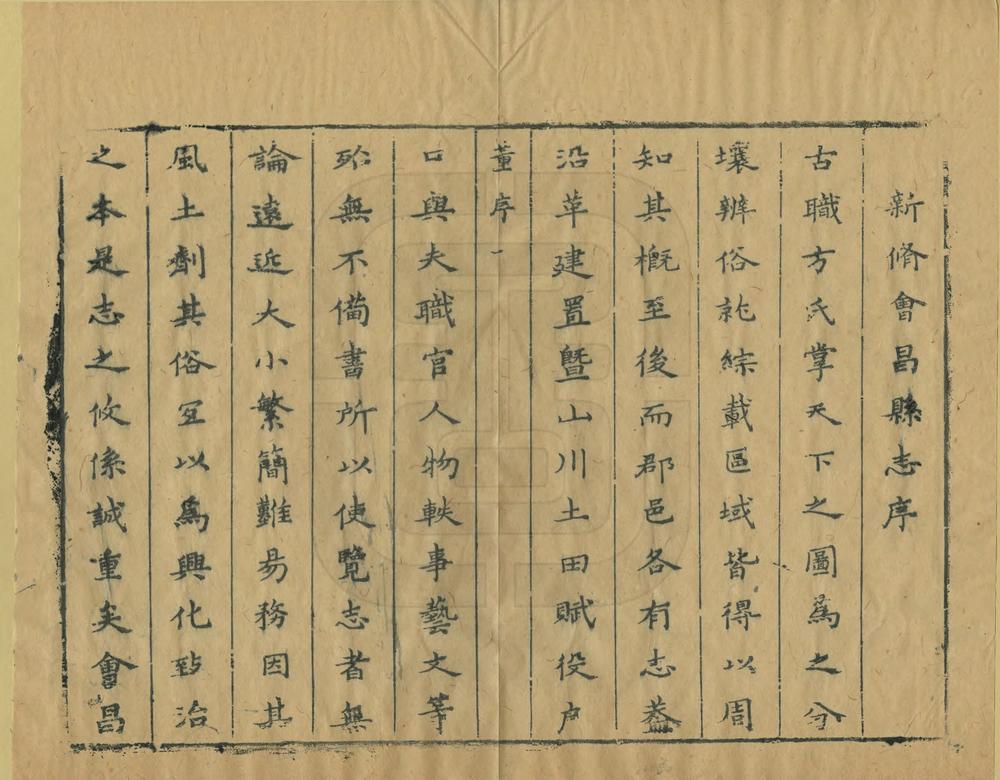 新脩會昌縣志序
古職方氏掌天下之圖為之分
壤辨俗就綜載區域皆得以周
知其概至後而郡邑各有志蓋
沿革建置曁山川土田賦役户
董序一
口與夫職官人物軼事藝文等
殆無不備書所以使覽志者無
論遠近大小繁簡難易務因其
風土劑其俗冝以為興化致治
之本是志之攸係誠重矣會昌